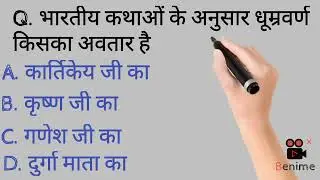 Q. भारतीय कथाओं के अनुसार धूम्रवर्ण
किसका अवतार है
A. कार्तिकेय जी का
B. कृष्ण जी का
C. गणेश जी का
D. दुर्गा माता का
Benime